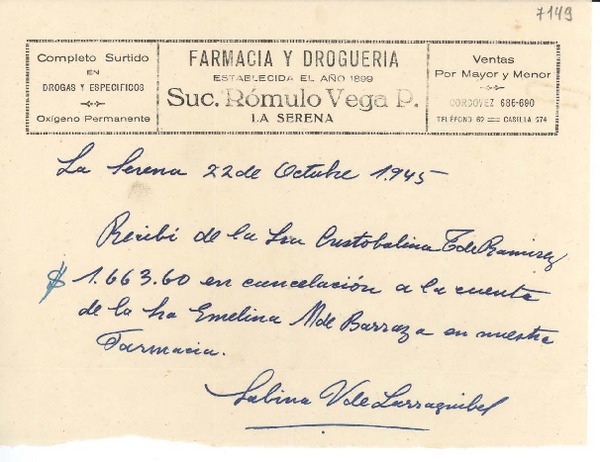 7149
Completo Surtido
EN
DROGAS Y ESPECIFICOS
Oxígeno Permanente
FARMACIA Y DROGUERIA
ESTABLECIDA EL AÑO 1899
Suc. Rómulo Vega P.
LA SERENA
Ventas
Por Mayor y Menor
CORDOVEZ 686-690
TELÉFONO 62 — CASILLA 574
La Serena 22 de Octubre 1945
Recibí de la Sra Cristobalina T de Ramirez
$ 1.663.60 en cancelación a la cuenta
de la Sra Emelina M de Barraza en nuestra
Farmacia.
Sabina V de Larraguibel